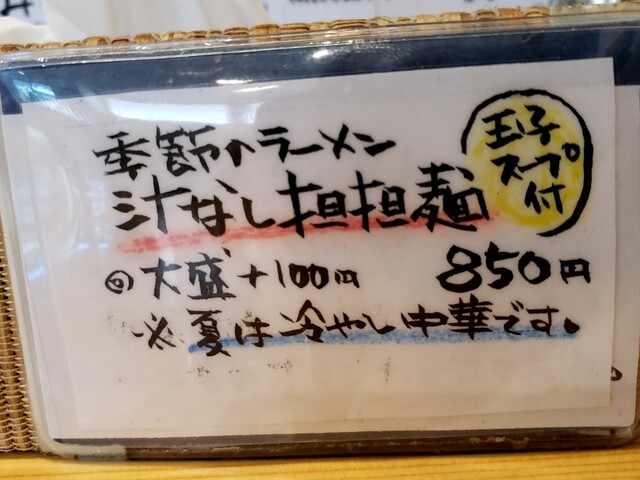 季節のラーメン
汁なし担担麺
玉子
スープ
付
850円
◎大盛+100円
※夏は冷やし中華です。